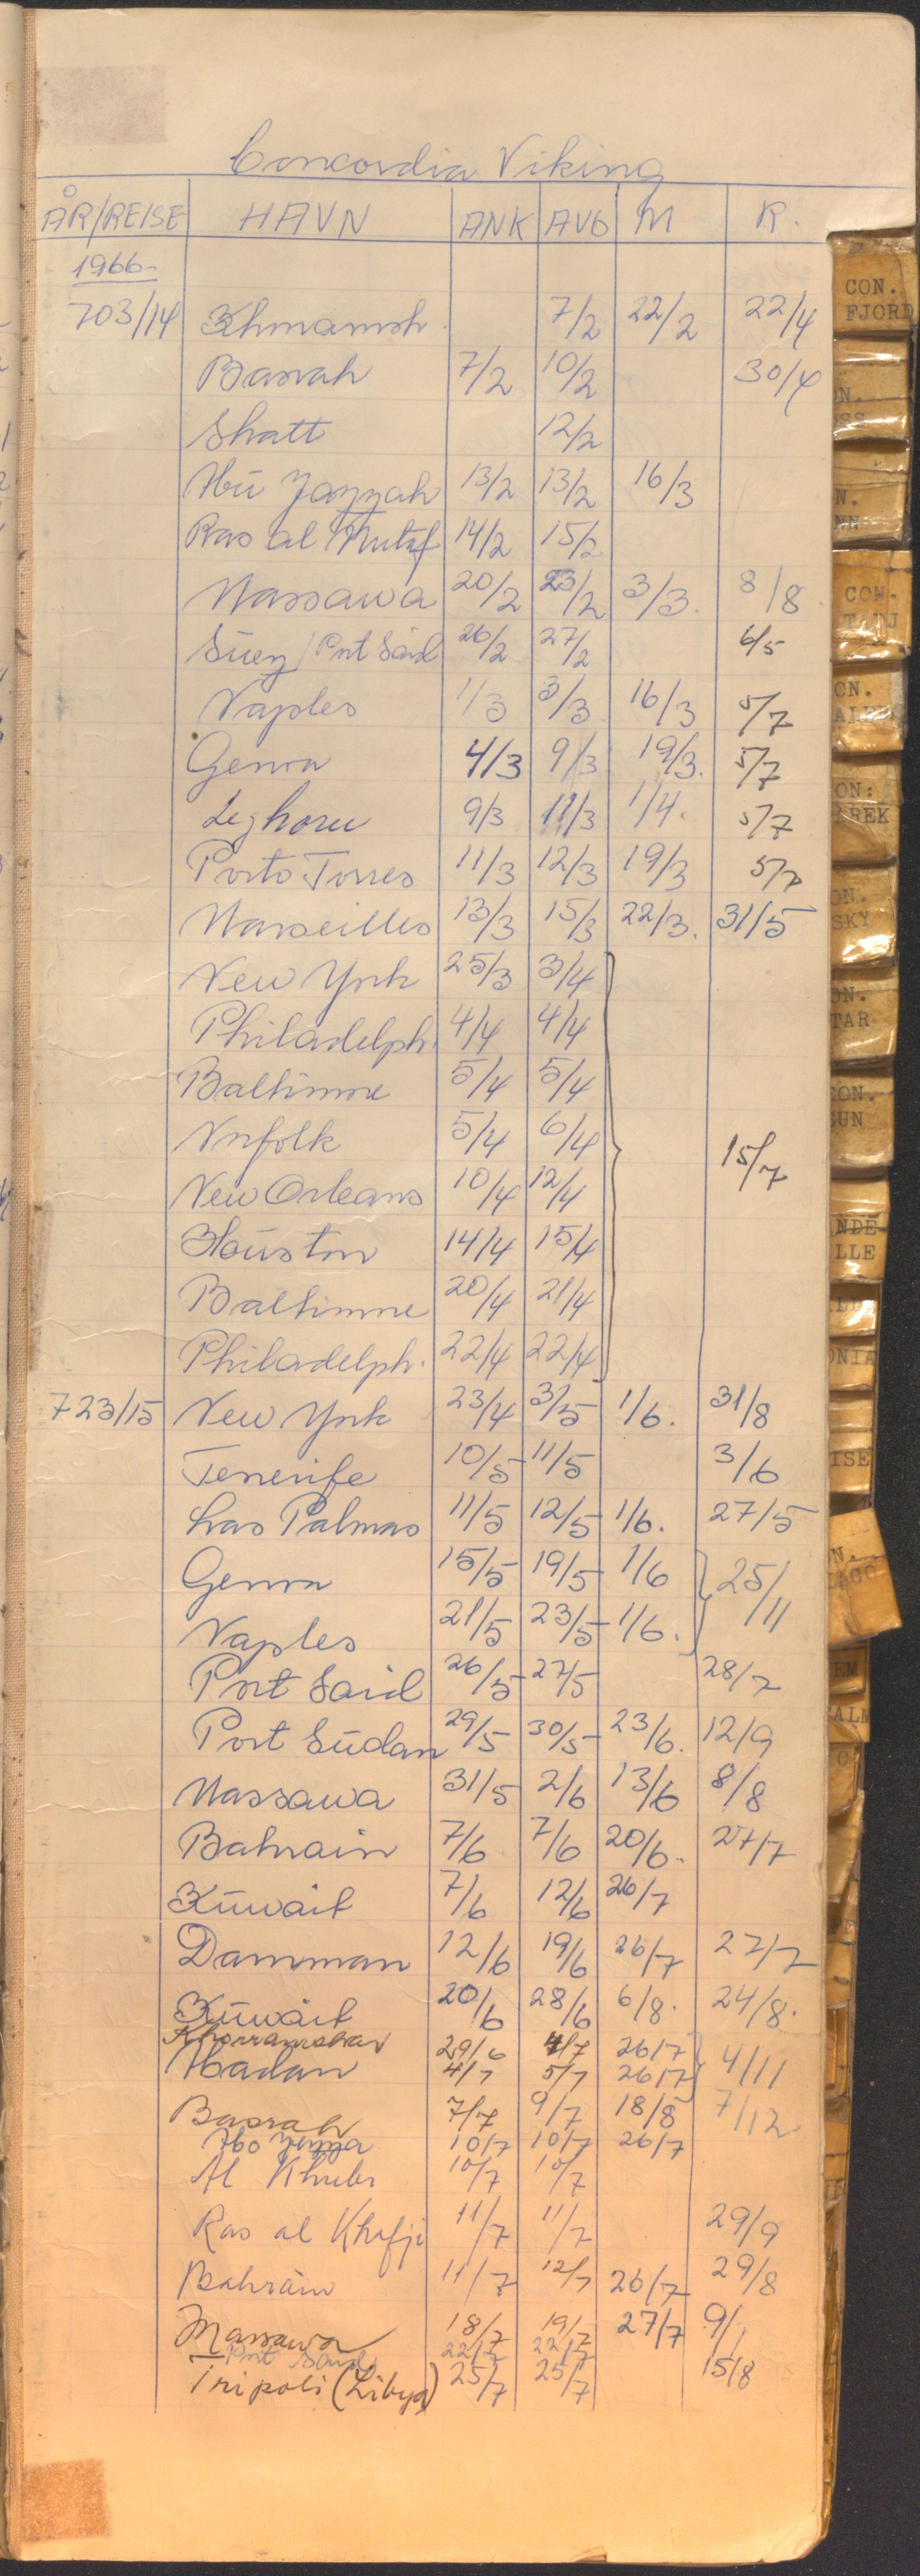 Concordia Viking
ÅR/REISE HAVN ANK AVG M R.
1966-
703/14 Khrnamsh. 7/2 22/2 22/4
Basrah 7/2 10/2 30/4
Shatt 12/2
Abu Yazzah 13/2 13/2 16/3
Ras al Mutaf 14/2 15/2
Massawa 20/2 23/2 3/3. 8/8
Suez / Port Said 26/2 27/2 6/5
Naples 1/3 3/3 16/3 5/7
Genoa 4/3 9/3 19/3. 5/7
Leghorn 9/3 11/3 1/4. 5/7
Porto Torres 11/3 12/3 19/3 5/7
Marseilles 13/3 15/3 22/3. 31/5
New York 25/3 3/4
Philadelph. 4/4 4/4
Baltimore 5/4 5/4
Norfolk 5/4 6/4 15/7
New Orleans 10/4 12/4
Houston 14/4 15/4
Baltimore 20/4 21/4
Philadelph. 22/4 22/4
723/15 New York 23/4 3/5 1/6. 31/8
Tenerife 10/5 11/5 3/6
Las Palmas 11/5 12/5 1/6. 27/5
Genoa 15/5 19/5 1/6 25/11
Naples 21/5 23/5 1/6.
Port Said 26/5 27/5 28/7
Port Sudan 29/5 30/5 23/6. 12/9
Massawa 31/5 2/6 13/6 8/8
Bahrain 7/6 7/6 20/6. 27/7
Kuwait 7/6 12/6 26/7
Damman 12/6 19/6 26/7 27/7
Kuwait 20/6 28/6 6/8. 24/8.
Khorramshar 29/6 4/7 26/7 4/11
Abadan 4/7 5/7 26/7
Basrah 7/7 9/7 18/8 7/12
Abo 10/7 10/7 26/7
Al Khubr 10/7 10/7
Ras al Khafji 11/7 11/7 29/9
Bahrain 11/7 12/7 26/7 29/8
Massawa 18/7 19/7 27/7 9/
Port Said 22/7 22/7
Tripoli (Libya) 25/7 25/7 15/8
CON.
FJORD
CON.
TADJ